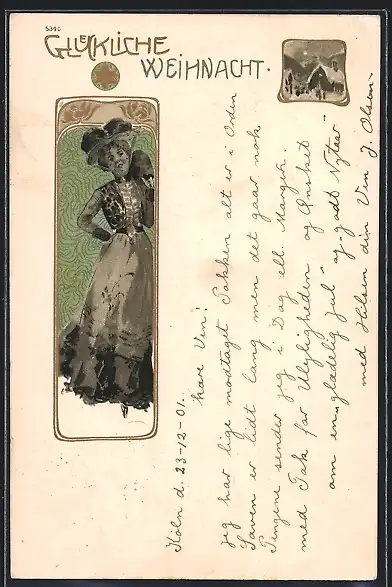 5390
GLUECKLICHE
WEIHNACHT.
Köln d. 23-12-01.
kære Ven!
jeg har lige modtaget Pakken alt er i Orden
Saven er lidt lang men det gaar nok
Pengene sender jeg i Dag ell. Morgen.
med Tak for Ulejligheden og Ønsket
om en "glædelig Jul" og "godt Nytaar"
med Hilsen din Ven J. Olsen